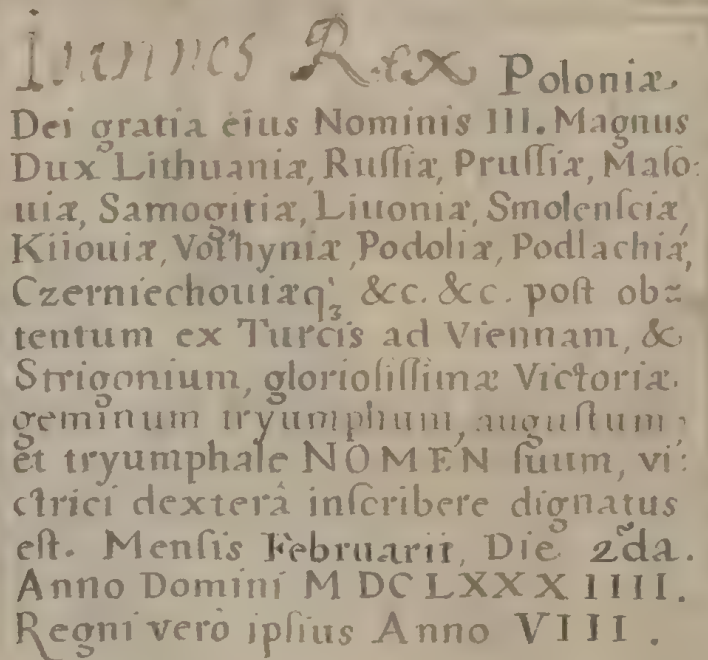 Ioannes Rex Poloniæ
Dei gratia eius Nominis III. Magnus
Dux Lithuaniæ, Ruſſiæ, Pruſſiæ, Maſo:
uiæ, Samogitiæ, Liuoniæ, Smolenſciæ,
Kiiouiæ, Volhyniæ, Podoliæ, Podlachiæ,
Czerniechouiæq; &c. &c. poſt ob=
tentum ex Turcis ad Viennam, &
Strigonium, glorioſiſſimæ Victoriæ.
geminum tryumphum, auguſtum,
et tryumphale NOMEN ſuum, vi:
ctrici dexterâ inſcribere dignatus
eſt. Menſis Februarii, Die 2da.
Anno Domini MDCLXXXIIII.
Regni verò ipſius Anno VIII.